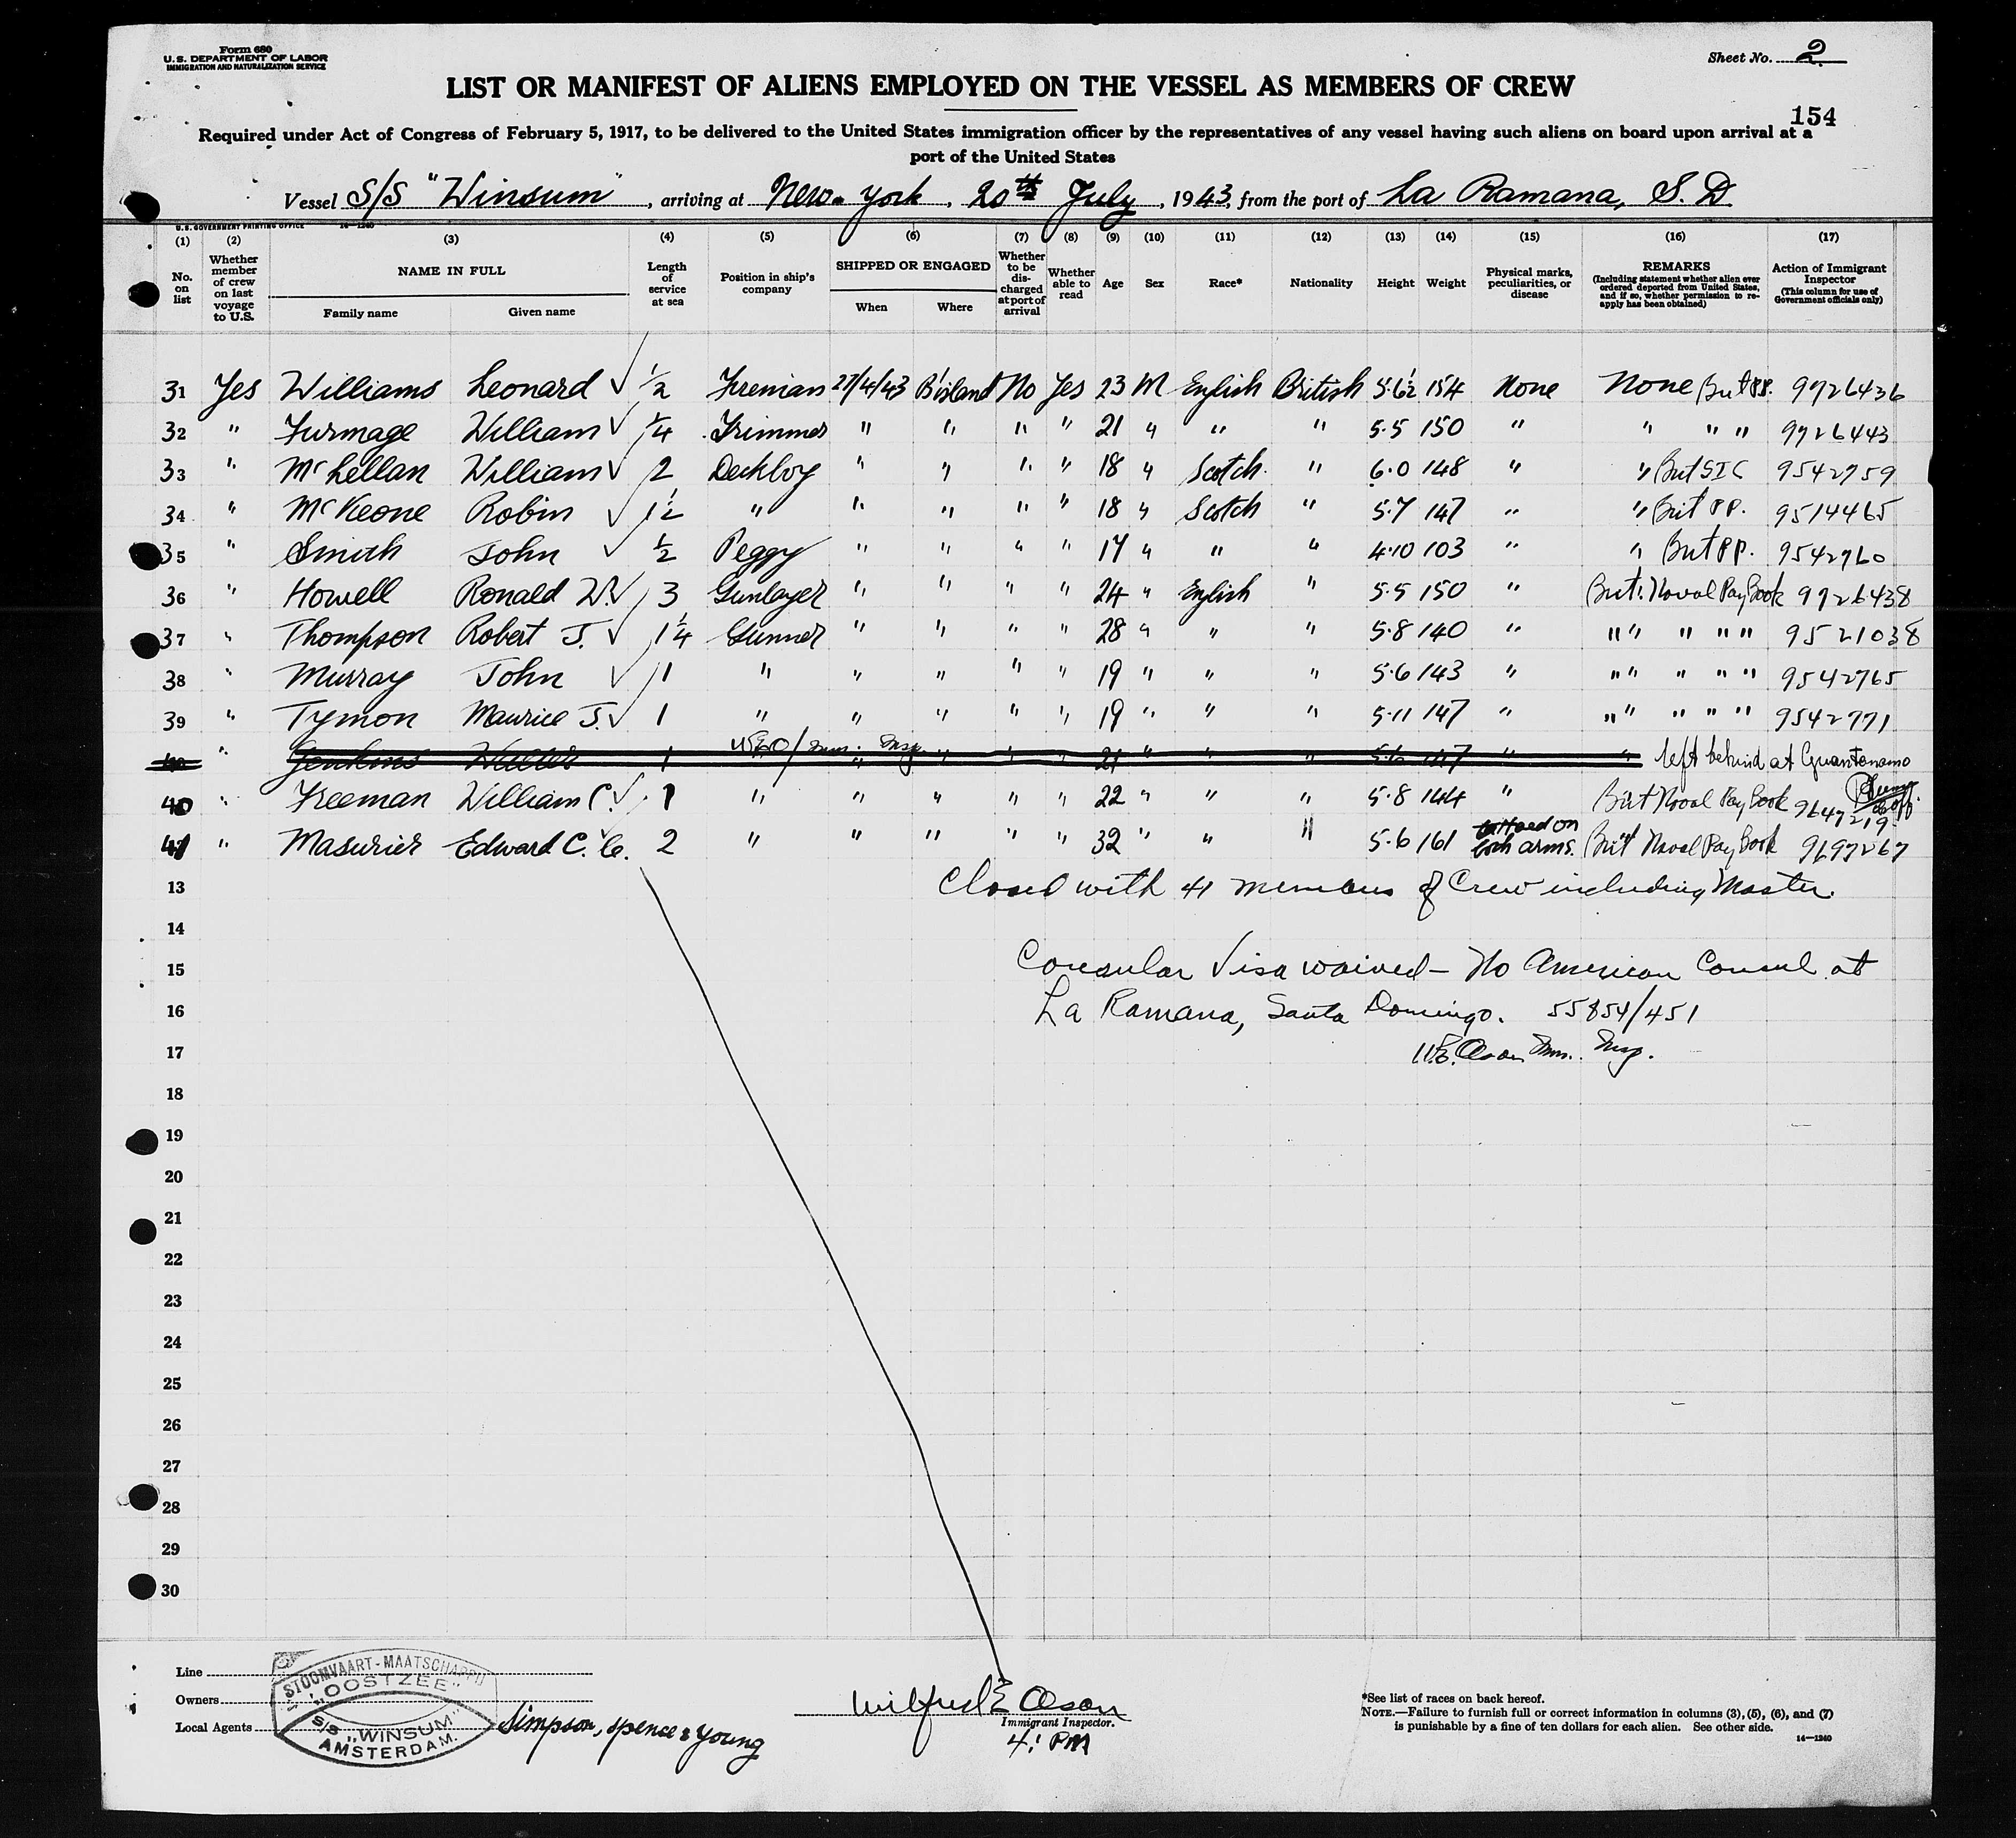 Form 680
U.S. DEPARTMENT OF LABOR
IMMIGRATION AND NATURALIZATION SERVICE
Sheet No. 2
LIST OR MANIFEST OF ALIENS EMPLOYED ON THE VESSEL AS MEMBERS OF CREW
154
Required under Act of Congress of February 5, 1917, to be delivered to the United States immigration officer by the representatives of any vessel having such aliens on board upon arrival at a
port of the United States
Vessel S/S "Winsum", arriving at New-York, 20th July, 1943, from the port of La Ramana, S.D.
U.S. GOVERNMENT PRINTING OFFICE 14-1240
(1) (2) (3) (4) (5) (6) (7) (8) (9) (10) (11) (12) (13) (14) (15) (16) (17)
No. on list
Whether member of crew on last voyage to U.S.
NAME IN FULL
Family name Given name
Length of service at sea
Position in ship's company
SHIPPED OR ENGAGED
When Where
Whether to be discharged at port of arrival
Whether able to read
Age
Sex
Race*
Nationality
Height
Weight
Physical marks, peculiarities, or disease
REMARKS
(Including statement whether alien ever ordered deported from United States, and if so, whether permission to re-apply has been obtained)
Action of Immigrant Inspector
(This column for use of Government officials only)
31 Yes Williams Leonard ✓ 1/2 Fireman 27/4/43 No Yes 23 M English British 5·6½ 154 None None Brit PP. 9926436
32 " Furmage William ✓ 1/4 Trimmer " " " " 21 " " " 5·5 150 " " " " 9926443
33 " McLellan William ✓ 2 Deckboy " " " " 18 " Scotch. " 6·0 148 " " Brit SIC 9542759
34 " McKeone Robin ✓ 1½ " " " " " 18 " Scotch " 5·7 147 " " Brit PP. 9514465
35 " Smith John ✓ ½ Peggy " " " " 17 " " " 4·10 103 " " Brit PP. 9542760
36 " Howell Ronald W. ✓ 3 Gunlayer " " " " 24 " English " 5·5 150 " Brit. Naval Pay Book 9926438
37 " Thompson Robert J. ✓ 1¼ Gunner " " " " 28 " " " 5·8 140 " "" " "" 9521038
38 " Murray John ✓ 1 " " " " " 19 " " " 5·6 143 " "" " " " 9542765
39 " Tymon Maurice J. ✓ 1 " " " " " 19 " " " 5·11 147 " "" " " " 9542771
" Jenkins 1 Imm. Insp. " " " " 21 " " " 5·6 147 " " left behind at Guantanamo
40 " Freeman William C. ✓ 1 " " " " " 22 " " " 5·8 144 " Brit Naval Pay Book 9647219
41 " Masurier Edward C. ✓ 2 " " " " " 32 " " " 5·6 161 tattoed on both arms. Brit Naval Pay Book 9697267
13 Closed with 41 members of Crew including Master.
14
15 Consular Visa waived — No American Consul at
16 La Ramana, Santa Domingo. 55854/451
17 W.E. Olson Imm. Insp.
18
19
20
21
22
23
24
25
26
27
28
29
30
Line
Owners
Local Agents Simpson, Spence & Young
STOOMVAART-MAATSCHAPPIJ
"OOSTZEE"
S/S "WINSUM"
AMSTERDAM.
Wilfred E Olson
Immigrant Inspector.
4: PM
*See list of races on back hereof.
NOTE.—Failure to furnish full or correct information in columns (3), (5), (6), and (7)
is punishable by a fine of ten dollars for each alien. See other side.
14-1240